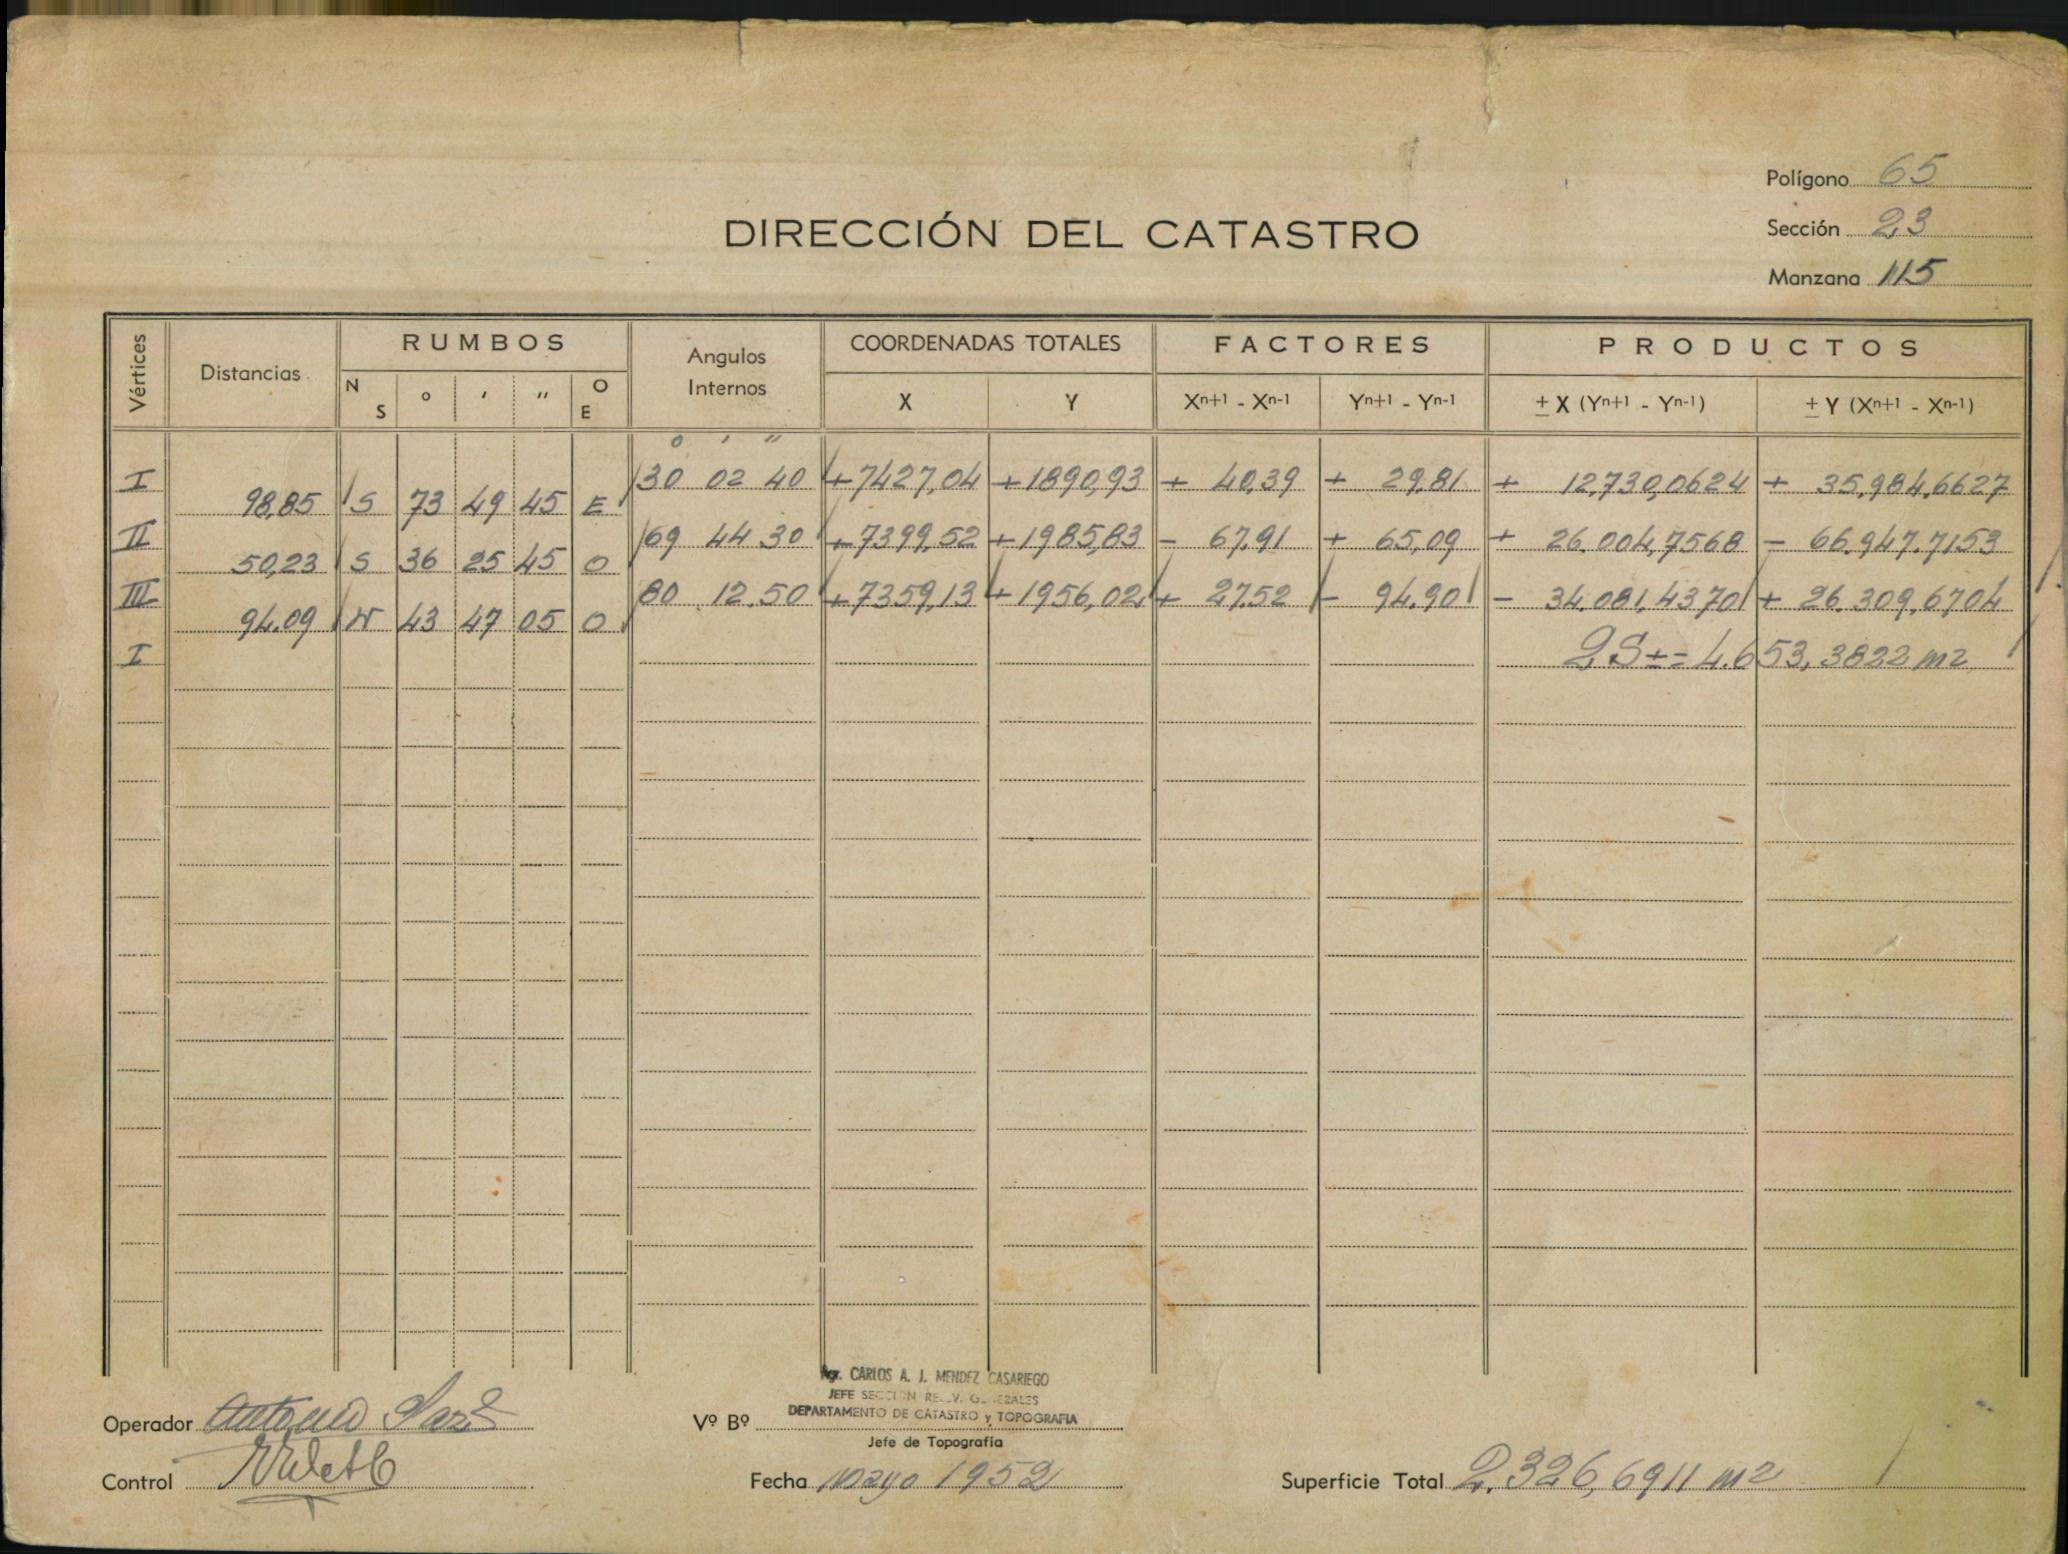 Polígono 65
DIRECCIÓN DEL CATASTRO
Sección 23
Manzana 115
Vértices Distancias RUMBOS Angulos Internos COORDENADAS TOTALES FACTORES PRODUCTOS
N S ° ' " O E X Y Xn+1 - Xn-1 Yn+1 - Yn-1 ± X (Yn+1 - Yn-1) ± Y (Xn+1 - Xn-1)
° ' "
I 30 02 40 +7427,04 +1890,93 + 40,39 + 29,81 + 12.730,0624 + 35.984,6627
98,85 S 73 49 45 E
II 69 44 30 +7399,52 +1985,83 - 67,91 + 65,09 + 26.004,7568 - 66.947.7153
50,23 S 36 25 45 O
III 80 12.50 +7359,13 +1956,02 + 27,52 - 94,90 - 34.081,4370 + 26.309,6704
94.09 N 43 47 05 O
I 2S±= 4.653,3822 m2
Agr. CARLOS A. J. MENDEZ CASARIEGO
JEFE SECCION RELEV. GENERALES
DEPARTAMENTO DE CATASTRO y TOPOGRAFIA
Operador Antonio
Vº Bº
Jefe de Topografía
Control
Fecha mayo 1952
Superficie Total 2.326,6911 m2